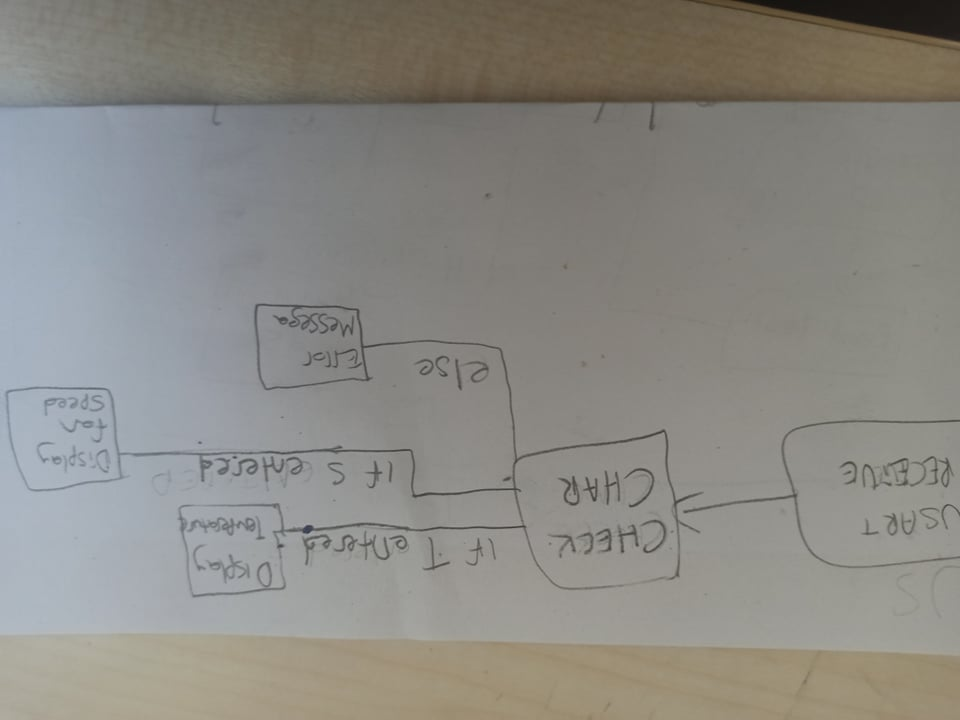 USART
RECEIVE
CHECK
CHAR
IF T entered
Display
IF S entered
Display
fan
Speed
else
Error
Messega